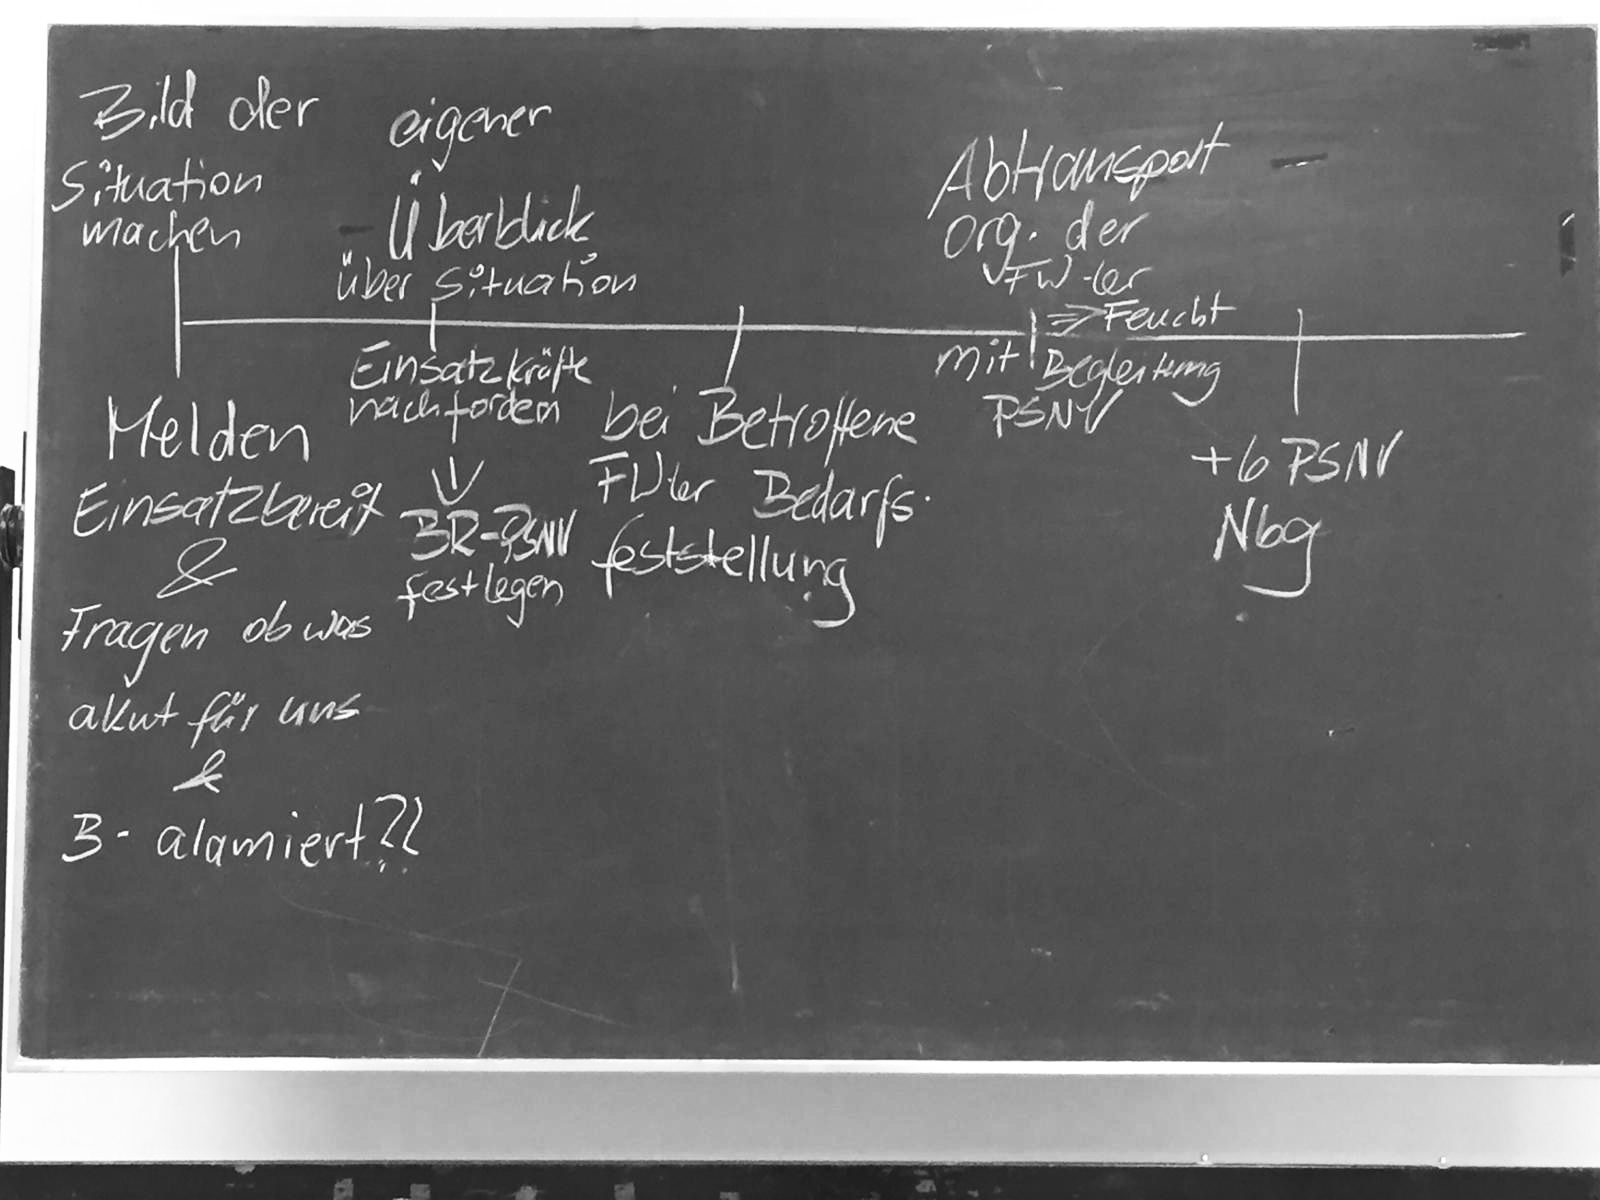 Bild der
Situation
machen
eigener
Überblick
über Situation
Abtransport
org. der
FW-ler
⇒ Feucht
Melden
Einsatzbereit
&
Fragen ob was
akut für uns
&
B- alamiert??
Einsatzkräfte
nachfordern
⇓
BR-PSNV
festlegen
bei Betroffene
FWler Bedarfs-
feststellung
mit Begleitung
PSNV
+6 PSNV
Nbg